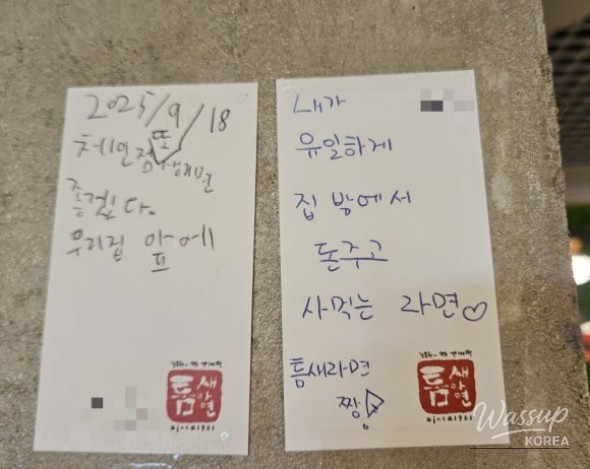 2025/9/18
체인점 또 생기면
좋겠다.
우리집 앞에
틈새
라면
since1981
내가
유일하게
집 밖에서
돈주고
사먹는 라면♡
틈새라면
짱!
틈새
라면
since1981
Wassup
KOREA